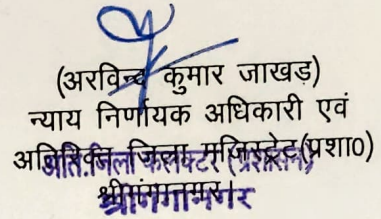 (अरविन्द कुमार जाखड़)
न्याय निर्णायक अधिकारी एवं
अतिरिक्त जिला मजिस्ट्रेट(प्रशा0)
अति.जिला कलक्टर (प्रशासन)
श्रीगंगानगर।
श्रीगंगानगर